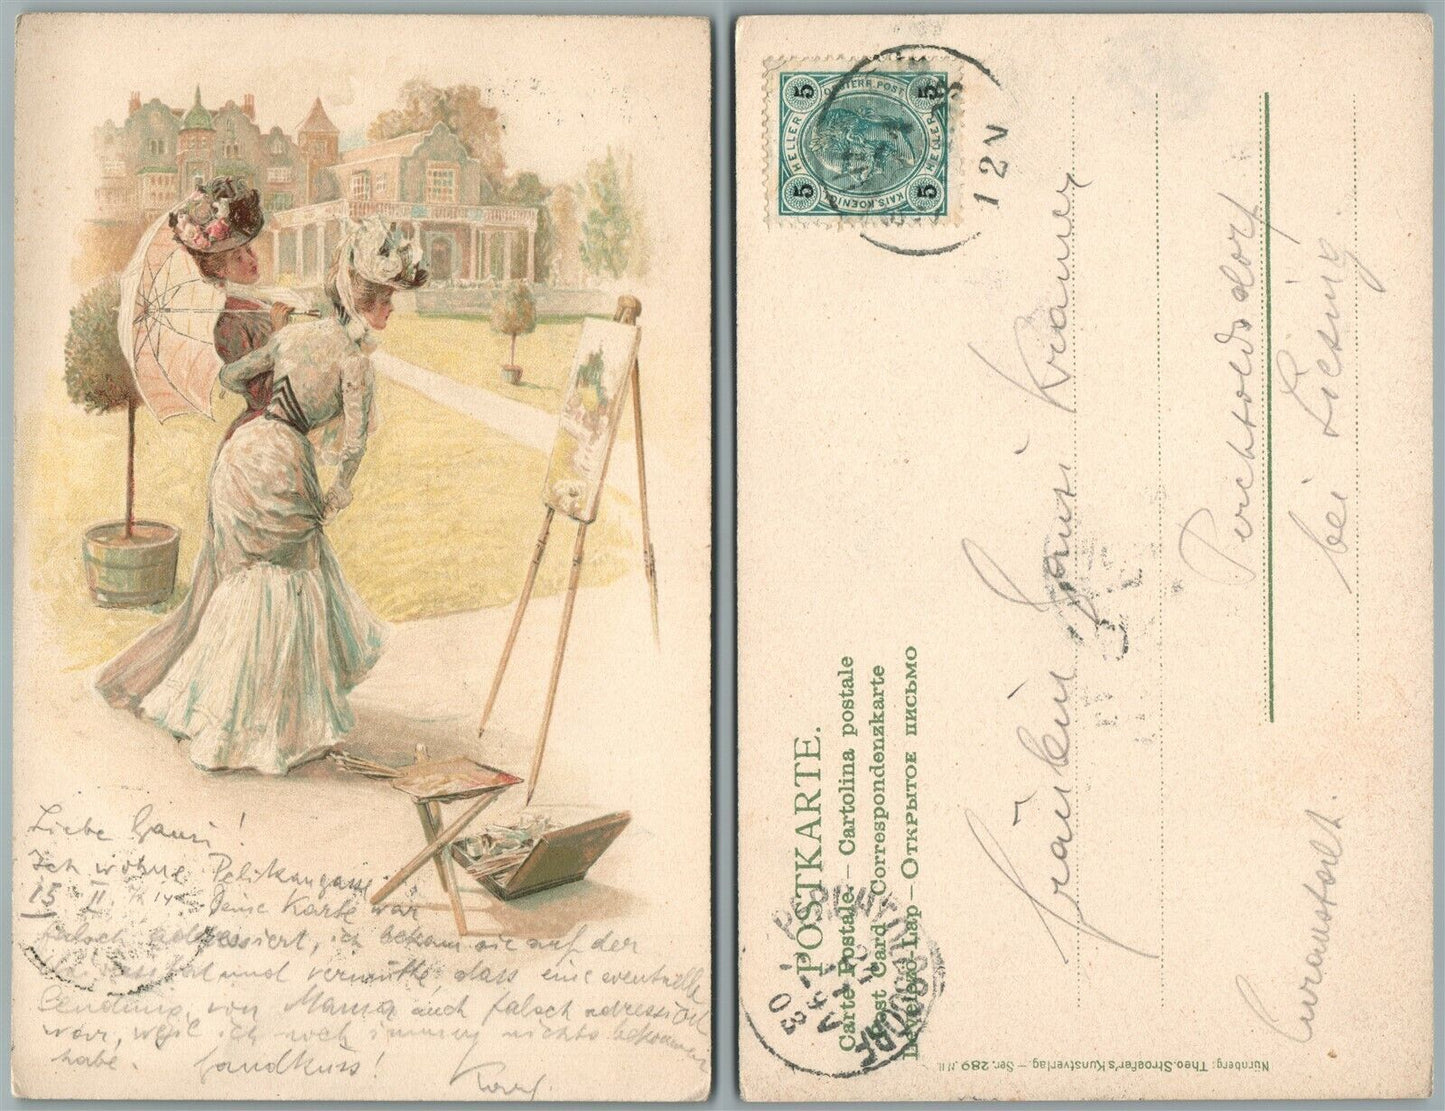 Liebe Gausi!
Ich wohne Pelikangasse
15 II. Deine Karte war
falsch adressiert, ich bekam sie auf der
und vermutte, dass eine eventuelle
Sendung von Mama auch falsch adressiert
war, weil ich noch immer nichts bekommen
habe. Handkuss!
Karl
5 5
OESTERR. POST
HELLER HELLER
5 5
12 V
Fräulein Gausi Kramer
Perchtoldsdorf
bei Liesing
Curanstalt.
POSTKARTE.
Carte Postale. — Cartolina postale
Post Card Correspondenzkarte
Levelező-Lap — Открытое письмо
Nürnberg: Theo. Stroefer's Kunstverlag. — Ser. 289.